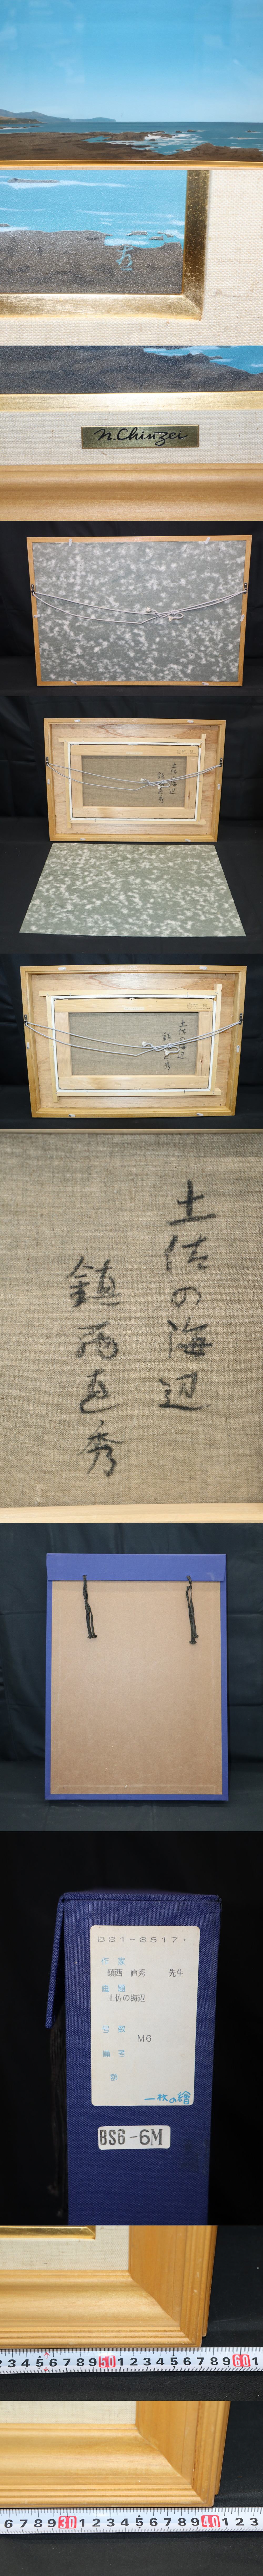 秀
N. Chinzei
土佐の海辺
鎮西直秀
土佐の海辺
鎮西直秀
土佐の海辺
鎮西直秀
B81-8517・
作家
鎮西 直秀 先生
画題
土佐の海辺
号数
M6
備考
一枚の繪
BS6-6M
3 4 5 6 7 8 9 50 1 2 3 4 5 6 7 8 9 60 1
6 7 8 9 30 1 2 3 4 5 6 7 8 9 40 1 2 3